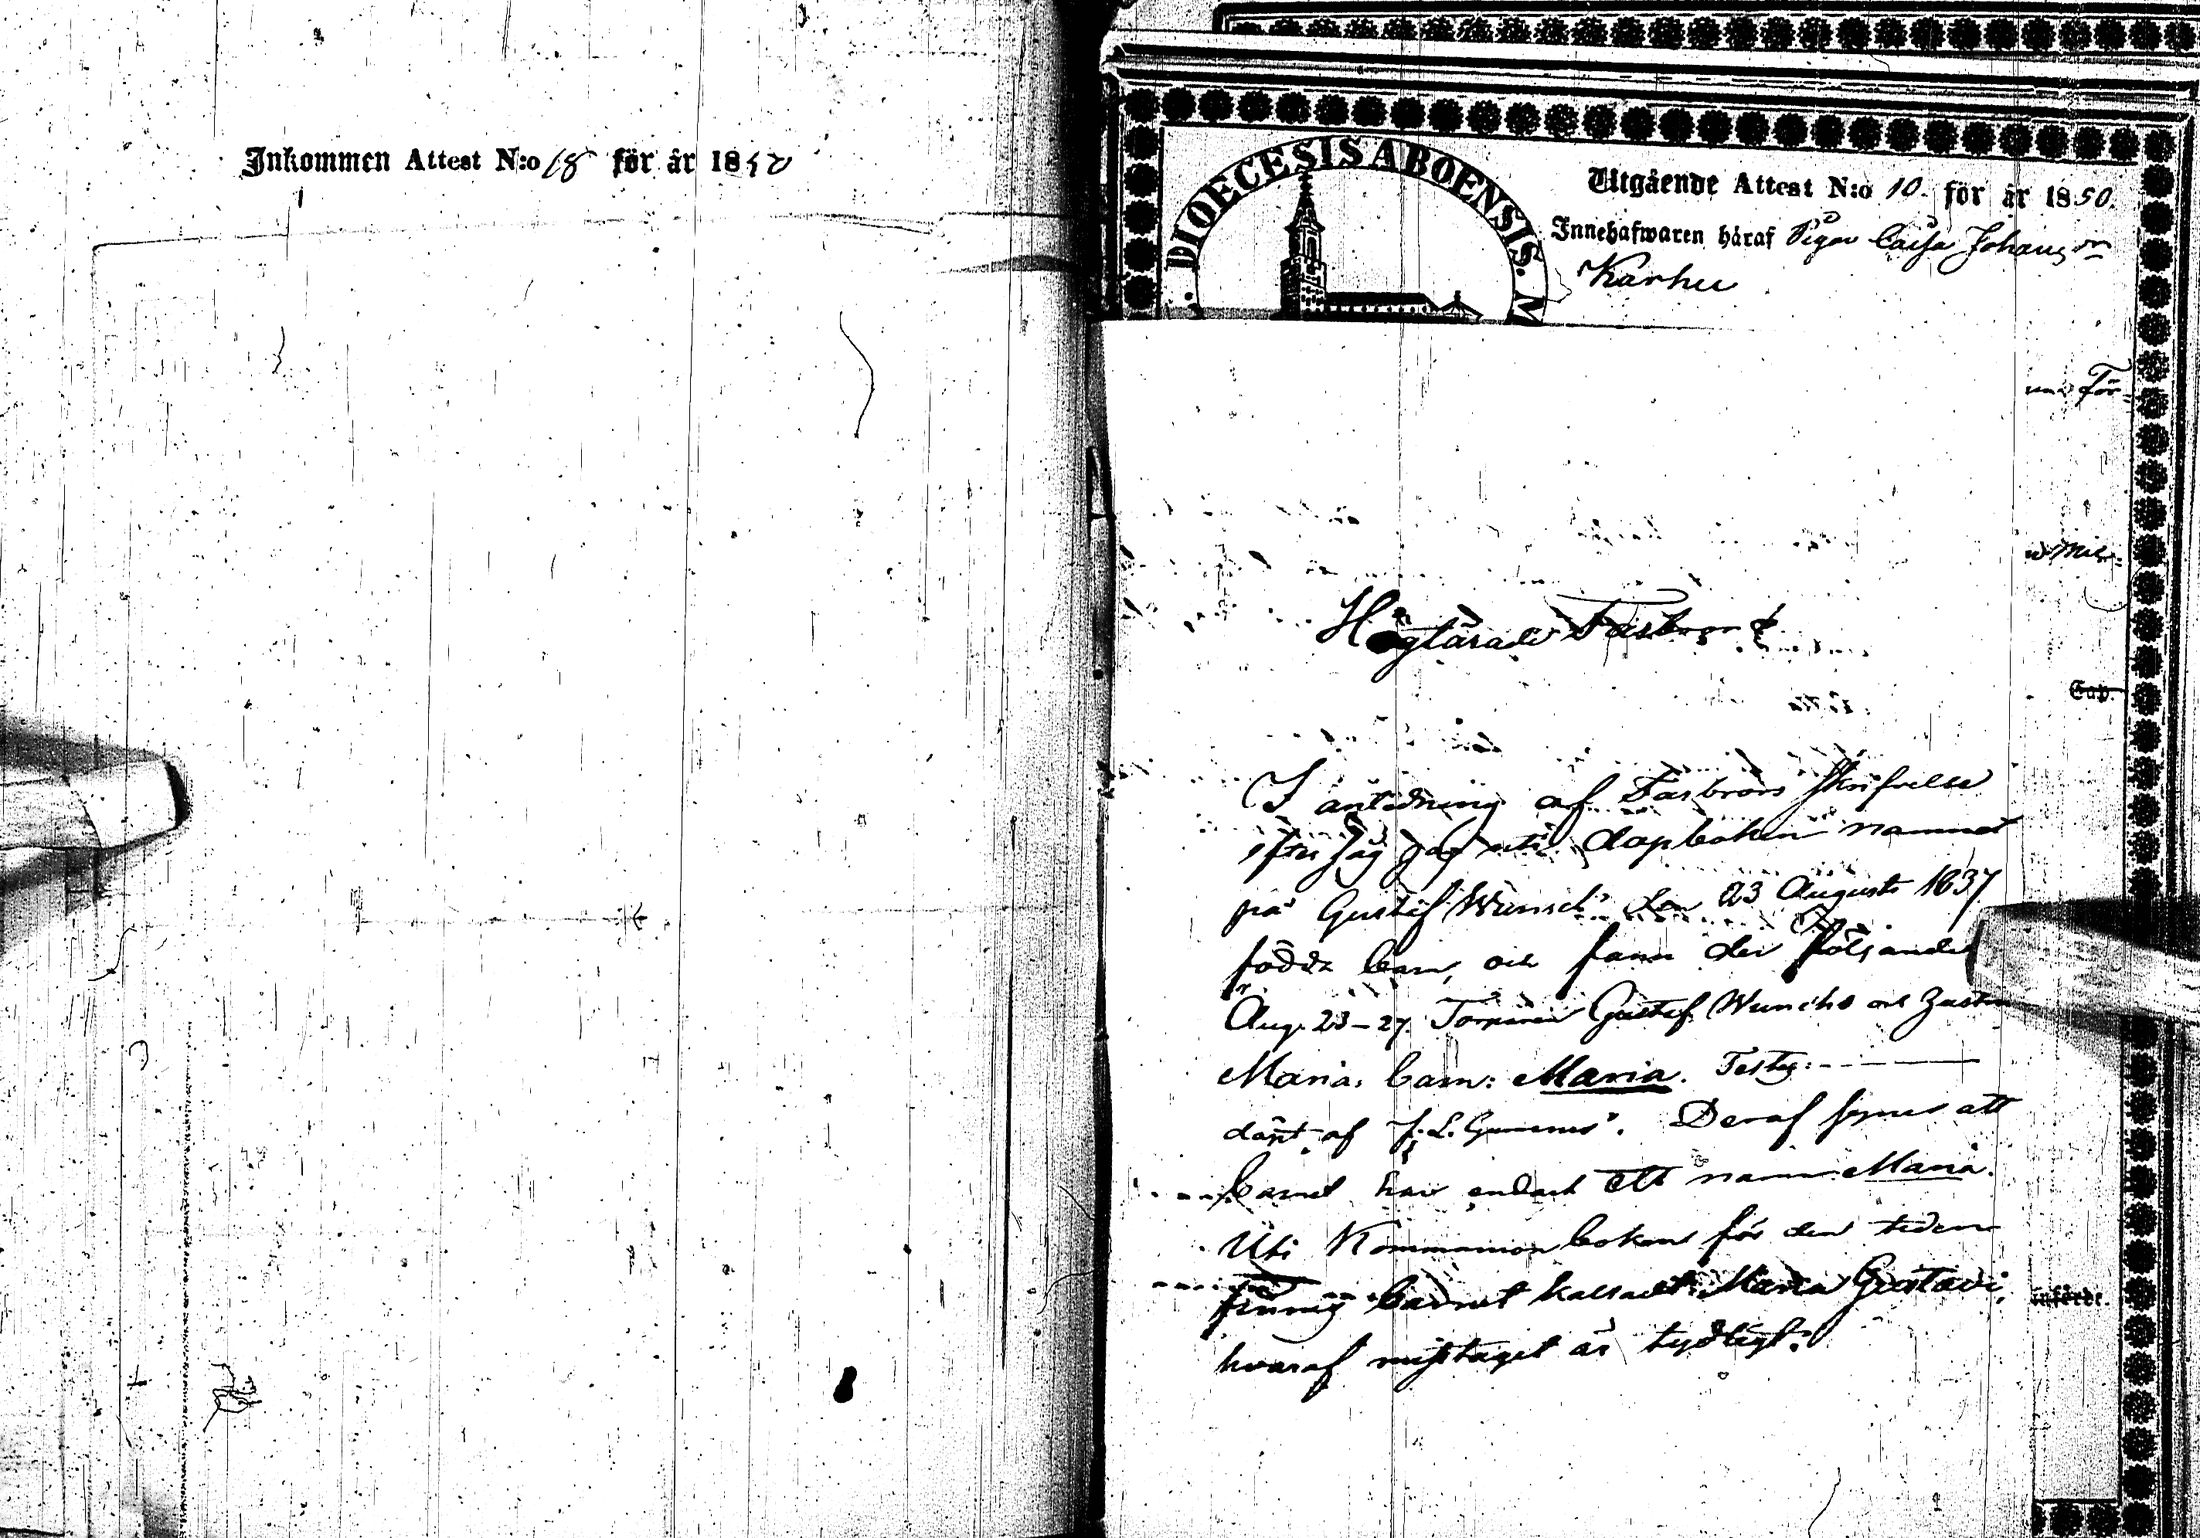 Inkommen Attest N:o 18 för år 1850
DIOECESIS ABOENSIS. M
Utgående Attest N:o 10. för år 1850.
Innehafwaren häraf Pigan Caisa Johansdr
Karhu
För-
Cap.
Högtärade Farbror!
I anledning af Farbrors skrifvelse
jag uti dopboken namnet
på Gustaf Wunsch's den 23 Augusti 1837
födda barn, och fann der följande
Aug. 23-27 Gustaf Wunchs och hustru
Maria. barn: Maria. Testes: - - -
döpt af J. L. Gummerus". Deraf synes att
barnet har endast ett namn Maria.
Uti Kommunionboken för den tiden
finnes barnet kalladt: Maria Gustava;
hvaraf misstaget är tydligt.
införde.